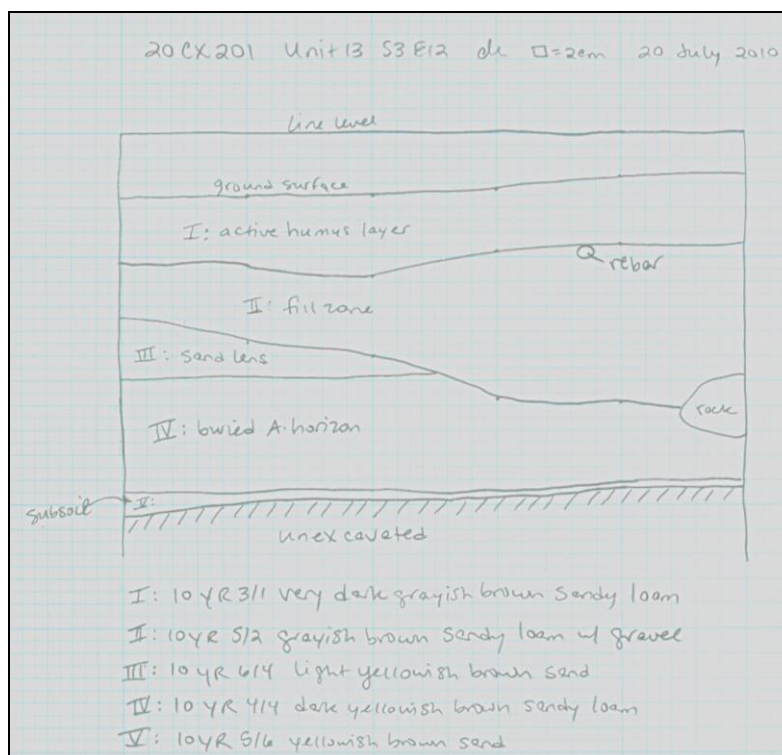 20CX201 Unit 13 S3 E12 de □=2cm 20 July 2010
line level
ground surface
I: active humus layer
rebar
II: fill zone
III: sand lens
rock
IV: buried A-horizon
subsoil
V:
unexcavated
I: 10 YR 3/1 very dark grayish brown sandy loam
II: 10YR 5/2 grayish brown sandy loam w/ gravel
III: 10 YR 6/4 light yellowish brown sand
IV: 10 YR 4/4 dark yellowish brown sandy loam
V: 10YR 5/6 yellowish brown sand